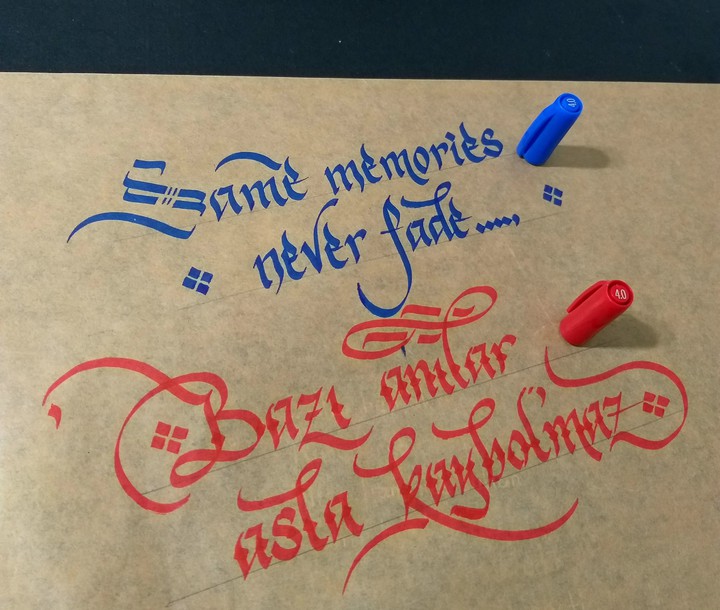 Same memories
never fade.....
4.0
Bazı anılar
asla kaybolmaz